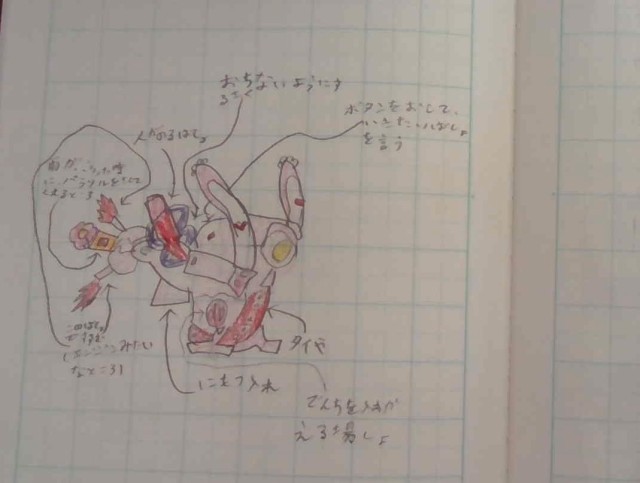 おちないようにす
るさく
ボタンをおして、
いきたいばしょ
を言う
人がのるばしょ
雨が ふった時
に パラソルを
くるところ
このばしょ
みたい
なところ!
にもつ入れ
タイヤ
でんちを入れか
える場しょ